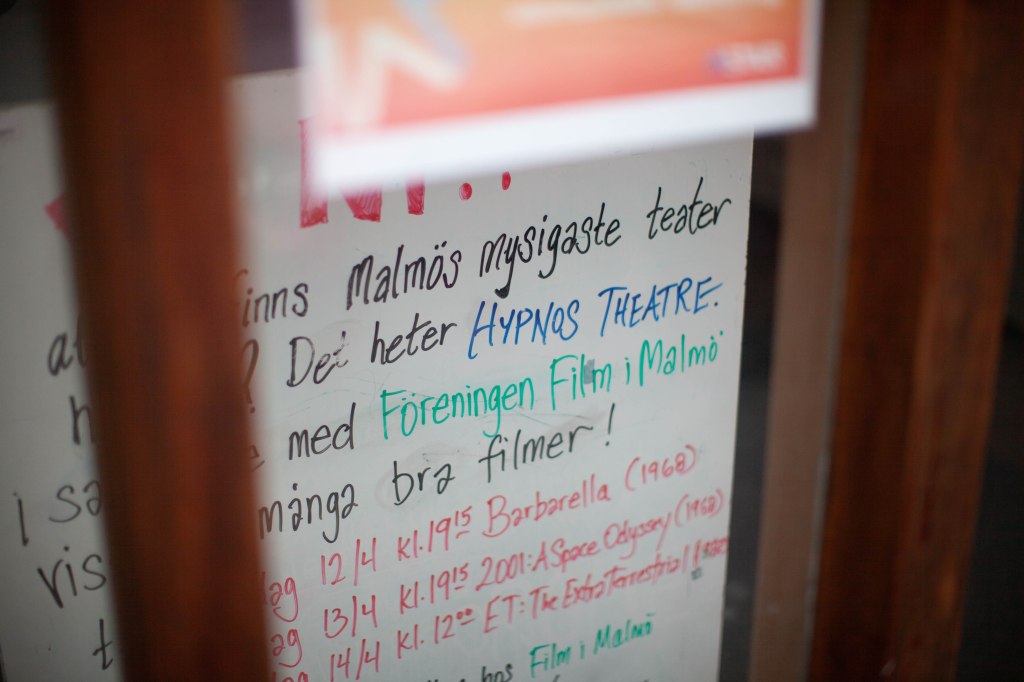 inns Malmös mysigaste teater
? Det heter HYPNOS THEATRE.
med Föreningen Film i Malmö
i sa
många bra filmer!
vis
ag 12/4 kl. 19¹⁵ Barbarella (1968)
ag 13/4 kl. 19¹⁵ 2001: A Space Odyssey (1968)
ag 14/4 kl. 12⁰⁰ ET: The Extra Terrestrial
t
hos Film i Malmö